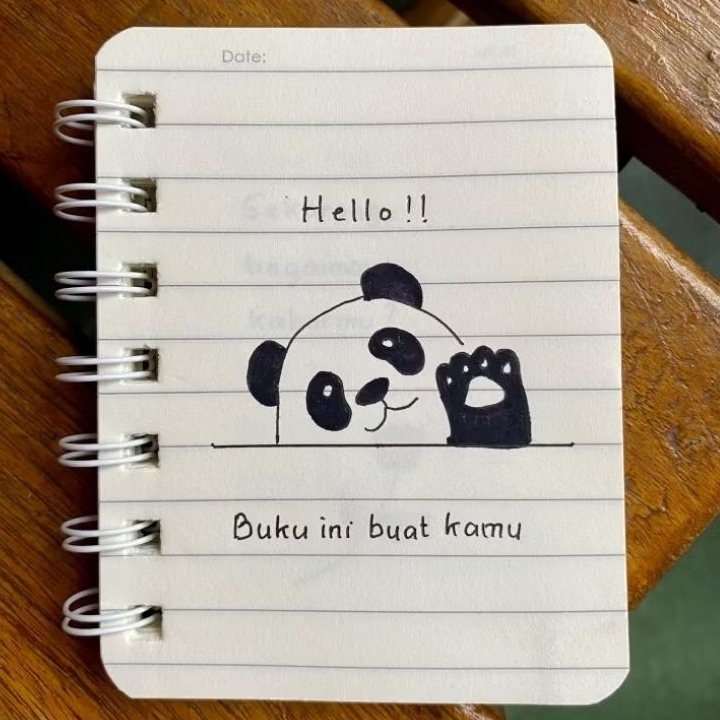 Date:
Hello!!
Buku ini buat kamu